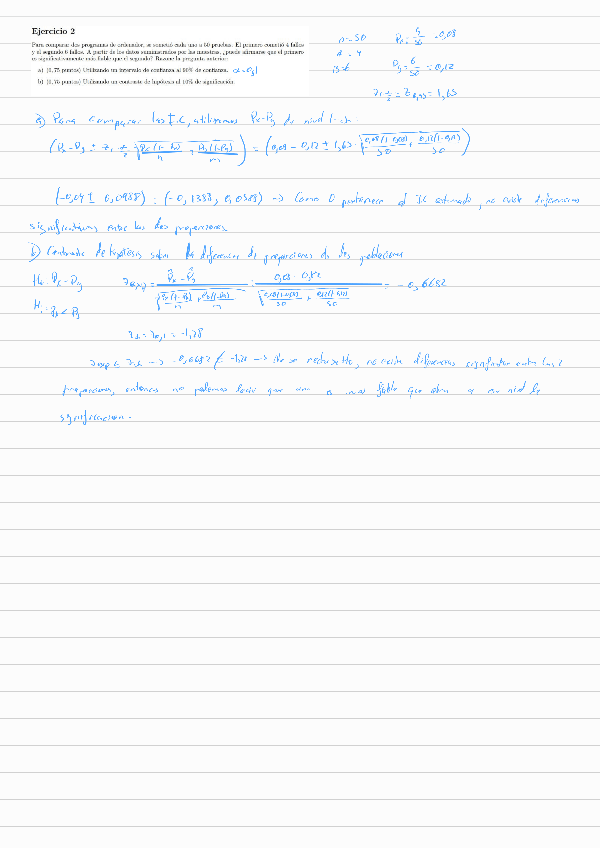 Ejercicio 2
Para comparar dos programas de ordenador, se sometió cada uno a 50 pruebas. El primero cometió 4 fallos
y el segundo 6 fallos. A partir de los datos suministrados por las muestras, ¿puede afirmarse que el primero
es significativamente más fiable que el segundo? Razone la pregunta anterior:
a) (0,75 puntos) Utilizando un intervalo de confianza al 90% de confianza. α=0,1
b) (0,75 puntos) Utilizando un contraste de hipótesis al 10% de significación.
n=50 Px = 4/50 = 0,08
Py = 6/50 = 0,12
z1-α/2 = z0,95 = 1,65
a) Para comparar los I.C, utilizamos Px-Py de nivel 1-α:
(Px - Py ± z1-α/2 √(Px(1-Px)/n + Py(1-Py)/m)) = (0,08 - 0,12 ± 1,65 · √(0,08(1-0,08)/50 + 0,12(1-0,12)/50))
(-0,04 ± 0,0988) : (-0,1388, 0,0588) -> Como 0 pertenece al I.C estimado, no existe diferencias
significativas entre las dos proporciones
b) Contraste de hipótesis sobre la diferencia de proporciones de dos poblaciones
H0: Px = Py zexp = (P̂x - P̂y)/√(Px(1-Px)/n + Py(1-Py)/m) = (0,08 - 0,12)/√(0,08(1-0,08)/50 + 0,12(1-0,12)/50) = -0,6682
H1: Px < Py
zα = z0,1 = -1,28
zexp < zα -> -0,6682 < -1,28 -> no se rechaza H0, no existe diferencias significativas entre las 2
proporciones, entonces no podemos decir que uno es mas fiable que otro a un nivel de
significación.